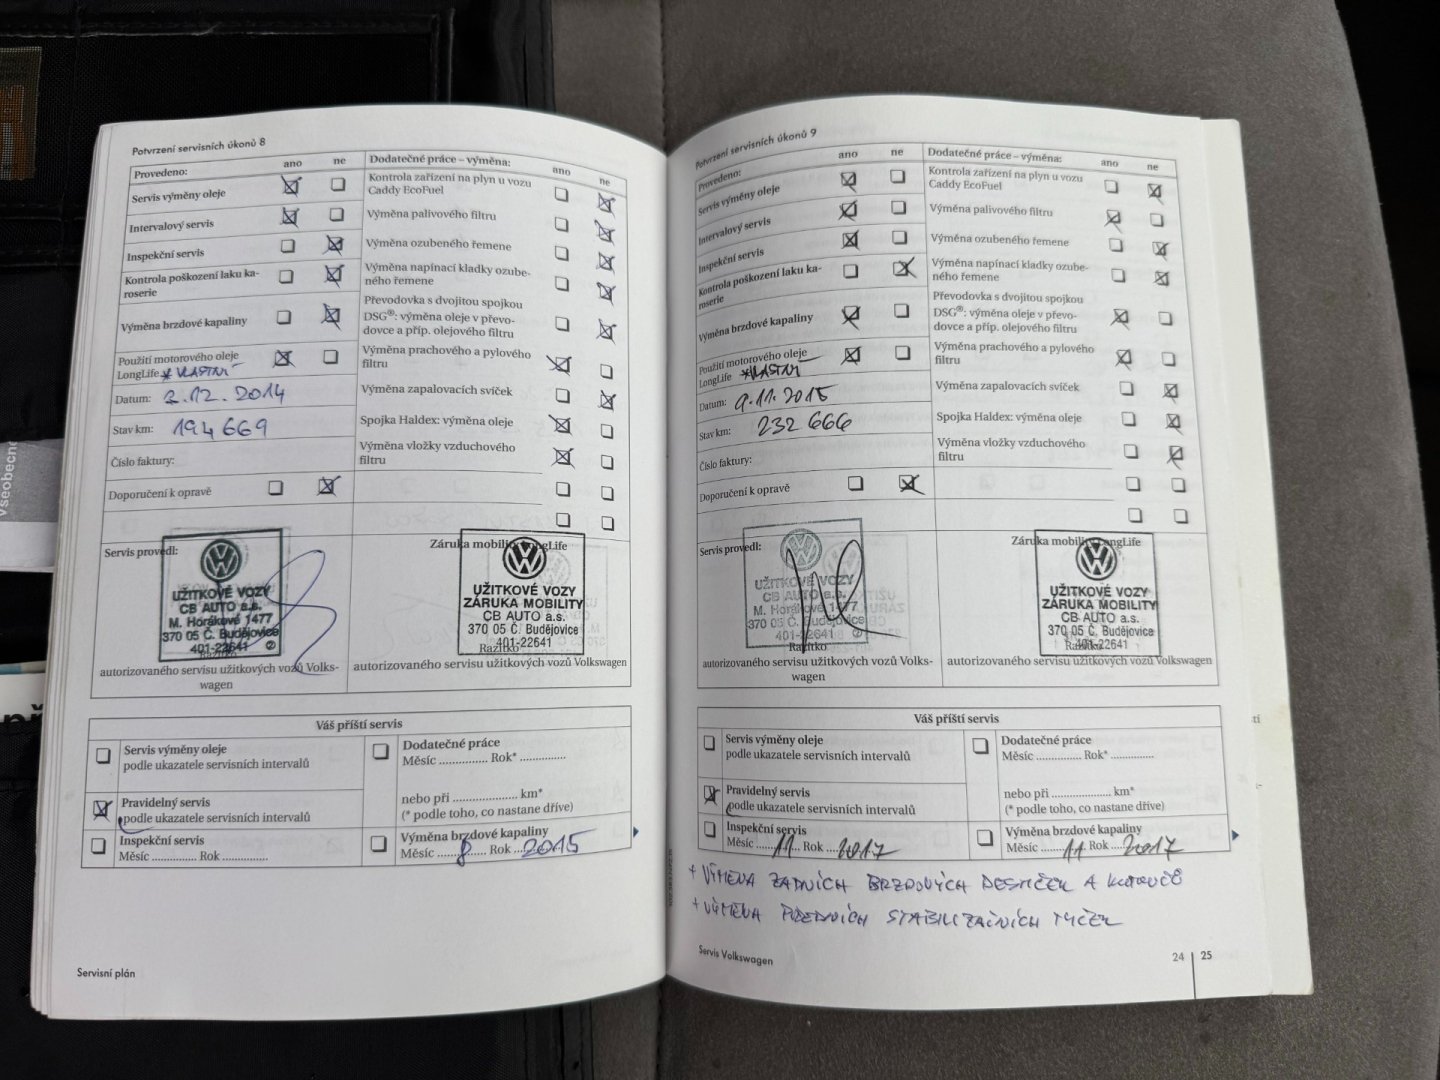 Potvrzení servisních úkonů 8
Provedeno: ano ne
Servis výměny oleje
Intervalový servis
Inspekční servis
Kontrola poškození laku ka-
roserie
Výměna brzdové kapaliny
Použití motorového oleje
LongLife *VLASTNÍ
Datum: 2.12.2014
Stav km: 194 669
Číslo faktury:
Doporučení k opravě
Dodatečné práce – výměna: ano ne
Kontrola zařízení na plyn u vozu
Caddy EcoFuel
Výměna palivového filtru
Výměna ozubeného řemene
Výměna napínací kladky ozube-
ného řemene
Převodovka s dvojitou spojkou
DSG®: výměna oleje v převo-
dovce a příp. olejového filtru
Výměna prachového a pylového
filtru
Výměna zapalovacích svíček
Spojka Haldex: výměna oleje
Výměna vložky vzduchového
filtru
Servis provedl:
UŽITKOVÉ VOZY
CB AUTO a.s.
M. Horákové 1477
370 05 Č. Budějovice
401-22641 2
Razítko
autorizovaného servisu užitkových vozů Volks-
wagen
Záruka mobility LongLife
UŽITKOVÉ VOZY
ZÁRUKA MOBILITY
CB AUTO a.s.
370 05 Č. Budějovice
401-22641
Razítko
autorizovaného servisu užitkových vozů Volkswagen
Váš příští servis
Servis výměny oleje
podle ukazatele servisních intervalů
Pravidelný servis
podle ukazatele servisních intervalů
Inspekční servis
Měsíc ............... Rok ...............
Dodatečné práce
Měsíc ............... Rok* ...............
nebo při .................... km*
(* podle toho, co nastane dříve)
Výměna brzdové kapaliny
Měsíc 8 Rok 2015
Servisní plán
Potvrzení servisních úkonů 9
Provedeno: ano ne
Servis výměny oleje
Intervalový servis
Inspekční servis
Kontrola poškození laku ka-
roserie
Výměna brzdové kapaliny
Použití motorového oleje
LongLife *VLASTNÍ
Datum: 9.11.2015
Stav km: 232 666
Číslo faktury:
Doporučení k opravě
Dodatečné práce – výměna: ano ne
Kontrola zařízení na plyn u vozu
Caddy EcoFuel
Výměna palivového filtru
Výměna ozubeného řemene
Výměna napínací kladky ozube-
ného řemene
Převodovka s dvojitou spojkou
DSG®: výměna oleje v převo-
dovce a příp. olejového filtru
Výměna prachového a pylového
filtru
Výměna zapalovacích svíček
Spojka Haldex: výměna oleje
Výměna vložky vzduchového
filtru
Servis provedl:
UŽITKOVÉ VOZY
CB AUTO a.s.
M. Horákové 1477
370 05 Č. Budějovice
401-22641 2
Razítko
autorizovaného servisu užitkových vozů Volks-
wagen
Záruka mobility LongLife
UŽITKOVÉ VOZY
ZÁRUKA MOBILITY
CB AUTO a.s.
370 05 Č. Budějovice
401-22641
Razítko
autorizovaného servisu užitkových vozů Volkswagen
Váš příští servis
Servis výměny oleje
podle ukazatele servisních intervalů
Pravidelný servis
podle ukazatele servisních intervalů
Inspekční servis
Měsíc 11 Rok 2017
Dodatečné práce
Měsíc ............... Rok* ...............
nebo při .................... km*
(* podle toho, co nastane dříve)
Výměna brzdové kapaliny
Měsíc 11 Rok 2017
+ VÝMĚNA ZADNÍCH BRZDOVÝCH DESTIČEK A KOTOUČŮ
+ VÝMĚNA PŘEDNÍCH STABILIZAČNÍCH TYČEK
Servis Volkswagen
24 25